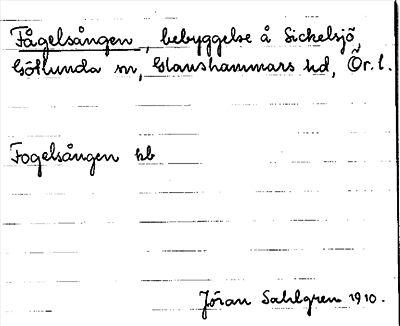 Fågelsången, bebyggelse å Sickelsjö,
Götlunda sn, Glanshammars hd, Ör. l.
Fogelsången kb
Jöran Sahlgren 1910.